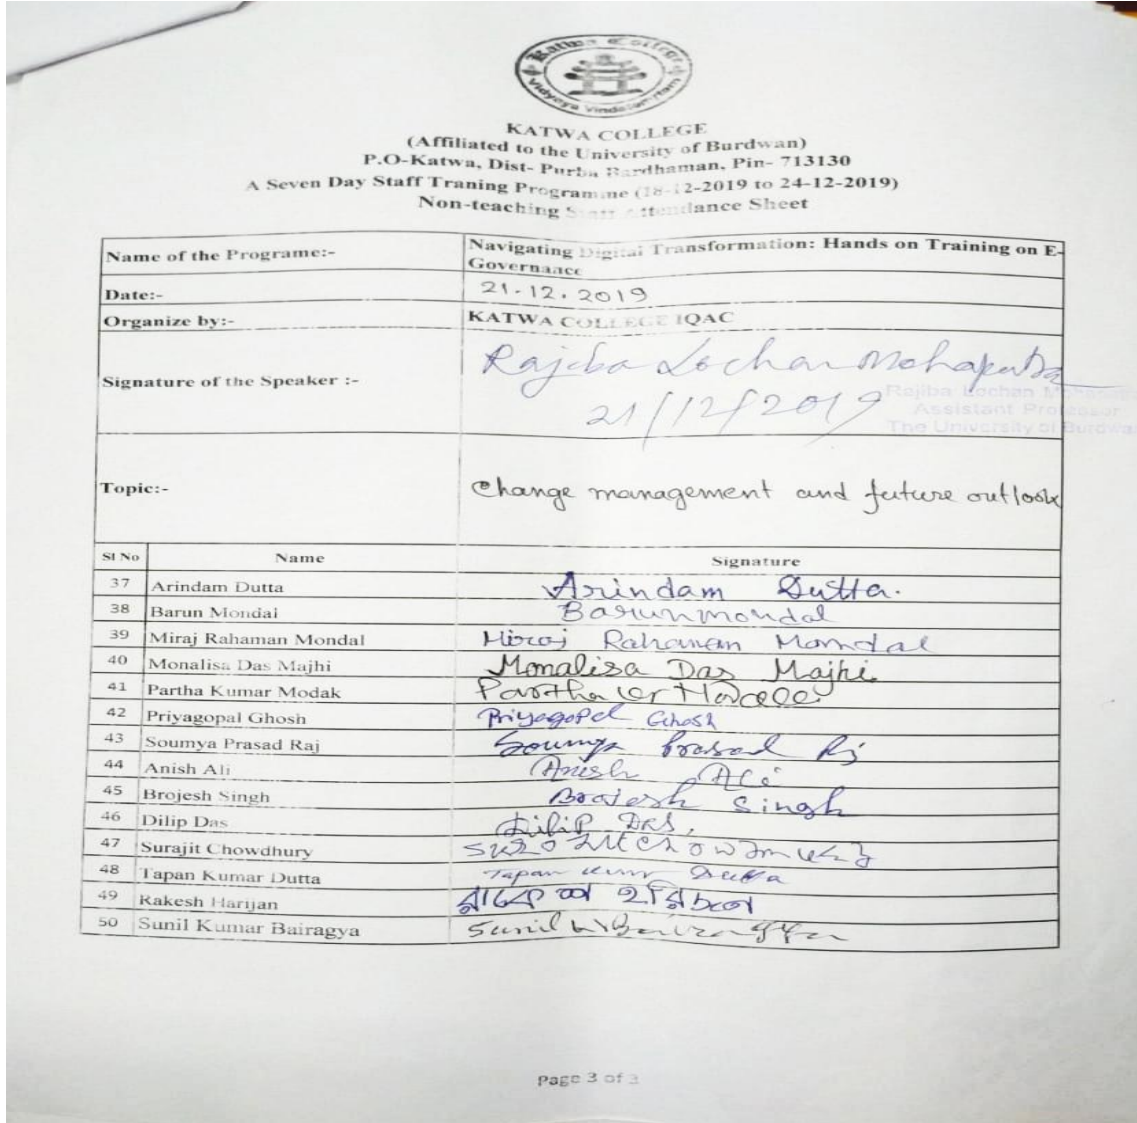 Katwa College
Vidyaya Vindatanritam
KATWA COLLEGE
(Affiliated to the University of Burdwan)
P.O-Katwa, Dist- Purba Bardhaman, Pin- 713130
A Seven Day Staff Traning Programme (18-12-2019 to 24-12-2019)
Non-teaching Staff Attendance Sheet
Name of the Programe:- Navigating Digital Transformation: Hands on Training on E-
Governance
Date:- 21.12.2019
Organize by:- KATWA COLLEGE IQAC
Signature of the Speaker :- Rajiba Lochan Mohapatra
21/12/2019
Rajiba Lochan
Assistant Professor
The University of Burdwan
Topic:- Change management and future outlook
Sl No Name Signature
37 Arindam Dutta Arindam Dutta.
38 Barun Mondal Barun mondal
39 Miraj Rahaman Mondal Miraj Rahaman Mondal
40 Monalisa Das Majhi Monalisa Das Majhi
41 Partha Kumar Modak Partha Kr
42 Priyagopal Ghosh Priyagopal Ghosh
43 Soumya Prasad Raj Soumya Prasad Raj
44 Anish Ali Anish Ali
45 Brojesh Singh Brojesh Singh
46 Dilip Das Dilip Das,
47 Surajit Chowdhury
48 Tapan Kumar Dutta Tapan Kumar Dutta
49 Rakesh Harijan রাকেশ হরিজন
50 Sunil Kumar Bairagya Sunil Kr Bairagya
Page 3 of 3